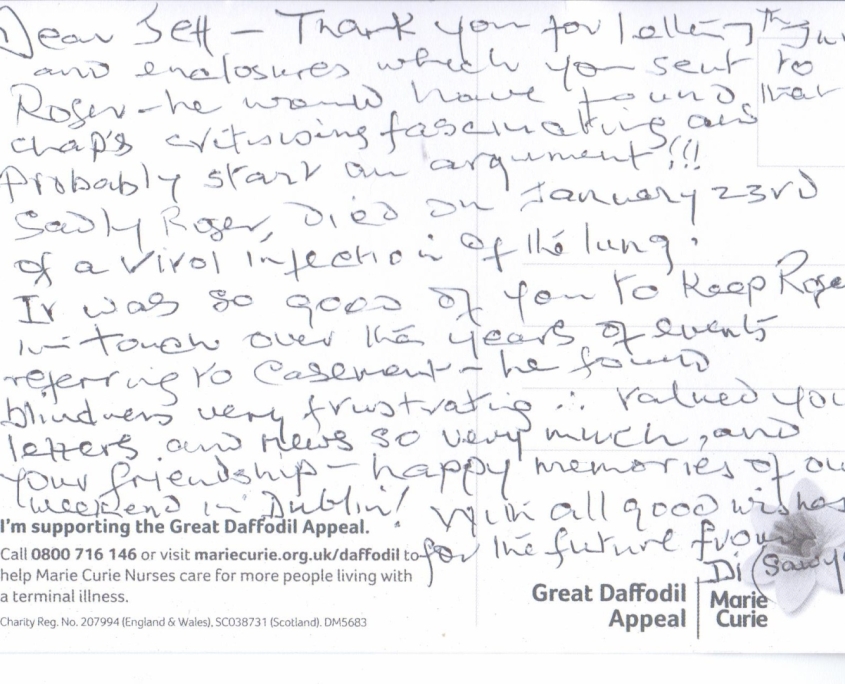 Dear Jeff - Thank you for letting
and enclosures which you sent to
Roger - he would have found that
chap's critisising fascinating and
Probably start an argument!!!
Sadly Roger, Died on January 23rd
of a Viral infection of the lung.
It was so good of you to keep Roge
in-touch over the years of events
referring to Casement - he found
blindness very frustrating ∴ valued you
letters and news so very much, and
your friendship - happy memories of ou
weekend in Dublin! With all good wishes
for the future from
Di (Sawy
I'm supporting the Great Daffodil Appeal.
Call 0800 716 146 or visit mariecurie.org.uk/daffodil to
help Marie Curie Nurses care for more people living with
a terminal illness.
Charity Reg. No. 207994 (England & Wales), SC038731 (Scotland). DM5683
Great Daffodil
Appeal
Marie
Curie